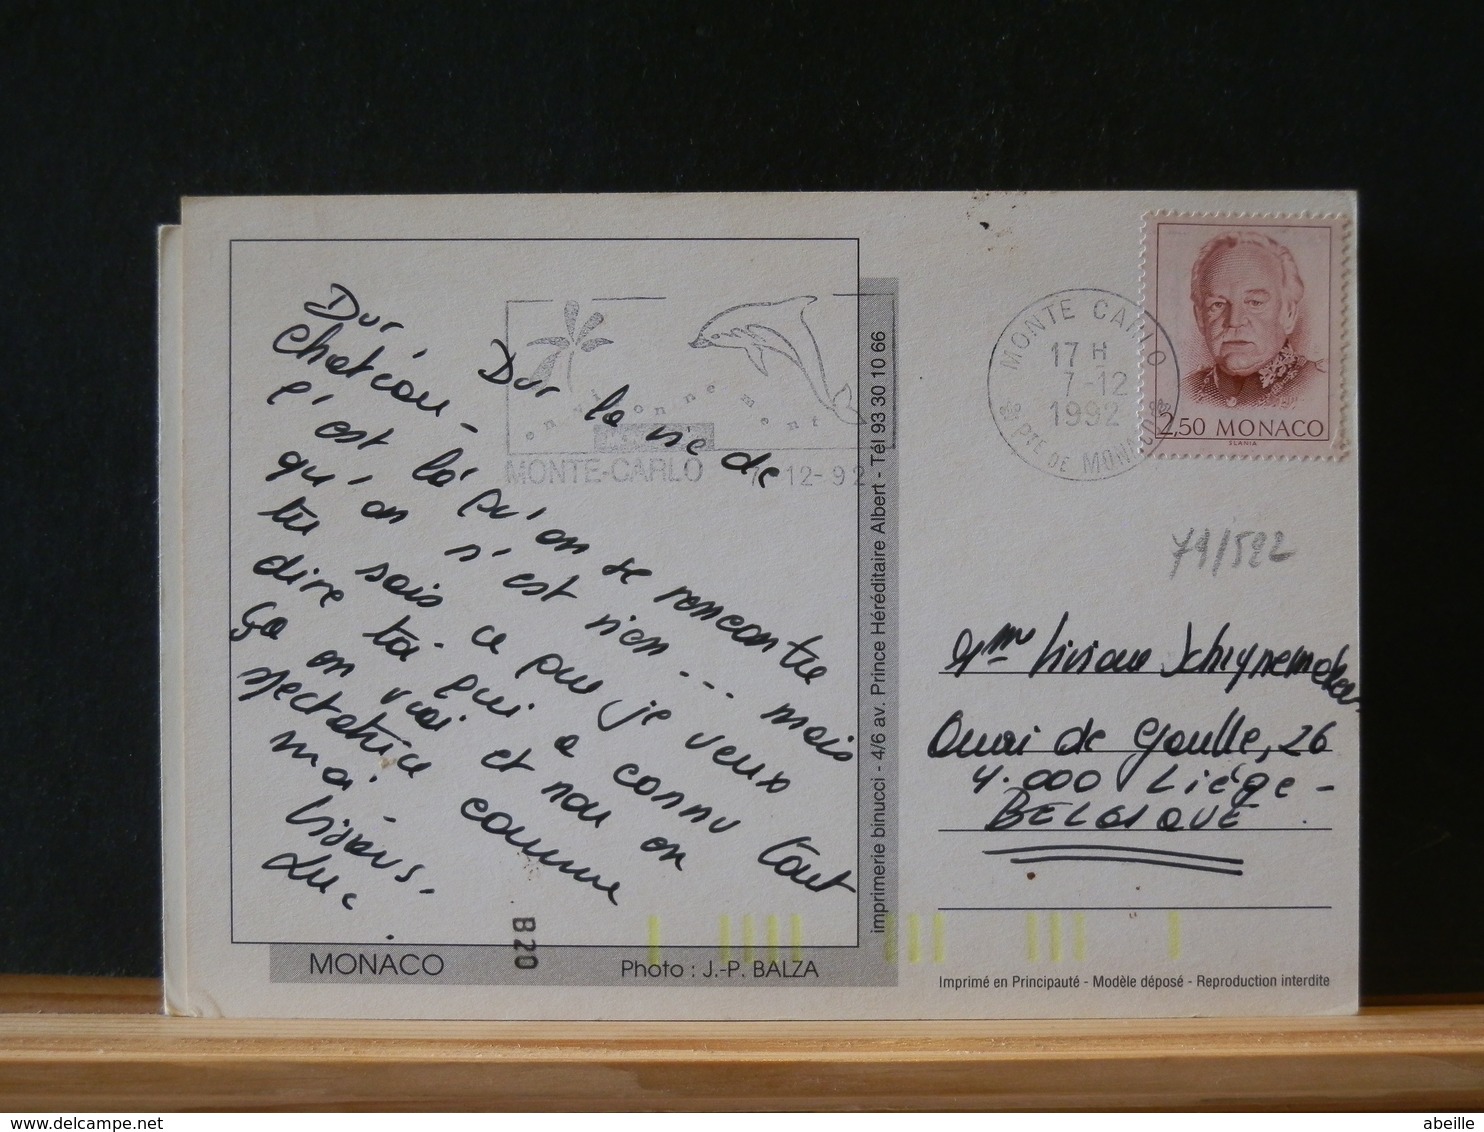 Dur
Dur la vie de
chateau -
c'est là qu'on se rencontre
qu'on s'est rien... mais
tu sais ce que je veux
dire toi qui a connu tout
ça en vrai et non en
spectatrice comme
moi -
Luc
environnement
MONTE-CARLO 7-12-92
MONTE CARLO
17 H
7-12
1992
PTE DE MONACO
2,50 MONACO
SLANIA
79/522
Mme Viviane
Quai de Gaulle, 26
4.000 Liége -
BELGIQUE
imprimerie binucci - 4/6 av. Prince Héréditaire Albert - Tél 93 30 10 66
B20
MONACO
Photo : J.-P. BALZA
Imprimé en Principauté - Modèle déposé - Reproduction interdite
abeille